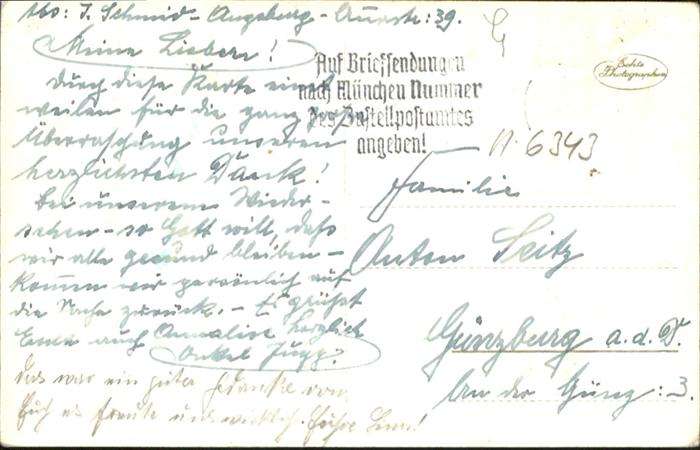 Abs: J. Schmid - Augsburg - Auerstr: 39.
Meine Lieben!
Durch diese Karte einst
weilen für die ganz große
Überraschung unseren
herzlichsten Dank!
Bei unserem Wieder-
sehen - so Gott will, daß
wir alle gesund bleiben -
kommen wir persönlich auf
die Sache zurück. - Es grüßt
Euch auch Annaliese herzlich
Onkel
Das war ein guter Gedanke von
Euch es freute uns wirklich.
Auf Briefsendungen
nach München Nummer
des Zustellpostamtes
angeben!
Echte
Photographie
n. 6343
Familie
Anton Seitz
Günzburg a.d.D.
An der Günz: 3.